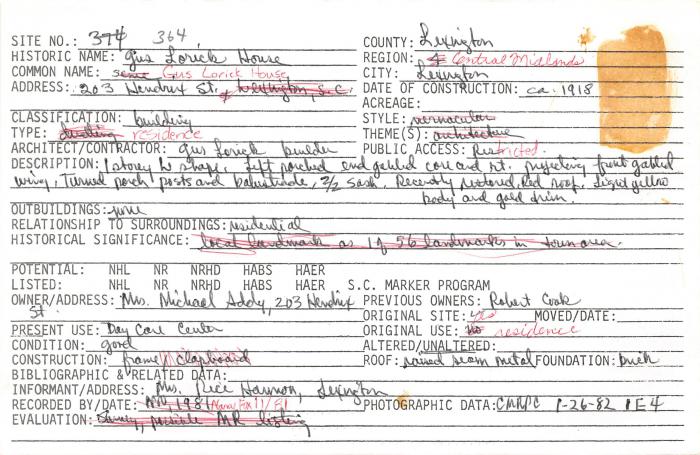 SITE NO.: 374 364 COUNTY: Lexington
HISTORIC NAME: Gus Lorick House REGION: Central Midlands
COMMON NAME: same Gus Lorick House CITY: Lexington
ADDRESS: 203 Hendrix St., Lexington, S.C. DATE OF CONSTRUCTION: ca. 1918
ACREAGE:
CLASSIFICATION: building STYLE: vernacular
TYPE: dwelling residence THEME(S): architecture
ARCHITECT/CONTRACTOR: Gus Lorick builder PUBLIC ACCESS: Restricted.
DESCRIPTION: 1 storey L shape, left porched end gabled core and rt. projecting front gabled
wing, Turned porch posts and balustrade, 2/2 sash. Recently restored, Red roof. Light yellow
body and gold trim.
OUTBUILDINGS: none
RELATIONSHIP TO SURROUNDINGS: residential
HISTORICAL SIGNIFICANCE: local landmark as 1 of 56 landmarks in town area.
POTENTIAL: NHL NR NRHD HABS HAER
LISTED: NHL NR NRHD HABS HAER S.C. MARKER PROGRAM
OWNER/ADDRESS: Mrs. Michael Addy, 203 Hendrix St. PREVIOUS OWNERS: Robert Cook
ORIGINAL SITE: yes MOVED/DATE:
PRESENT USE: Day Care Center ORIGINAL USE: no residence
CONDITION: good ALTERED/UNALTERED:
CONSTRUCTION: frame clapboard ROOF: raised seam metal FOUNDATION: brick
BIBLIOGRAPHIC & RELATED DATA:
INFORMANT/ADDRESS: Mrs. Rice Harmon, Lexington
RECORDED BY/DATE: 1981 Nancy Fox 11/81 PHOTOGRAPHIC DATA: CMRPC 1-26-82 1E4
EVALUATION: Survey, possible MR listing